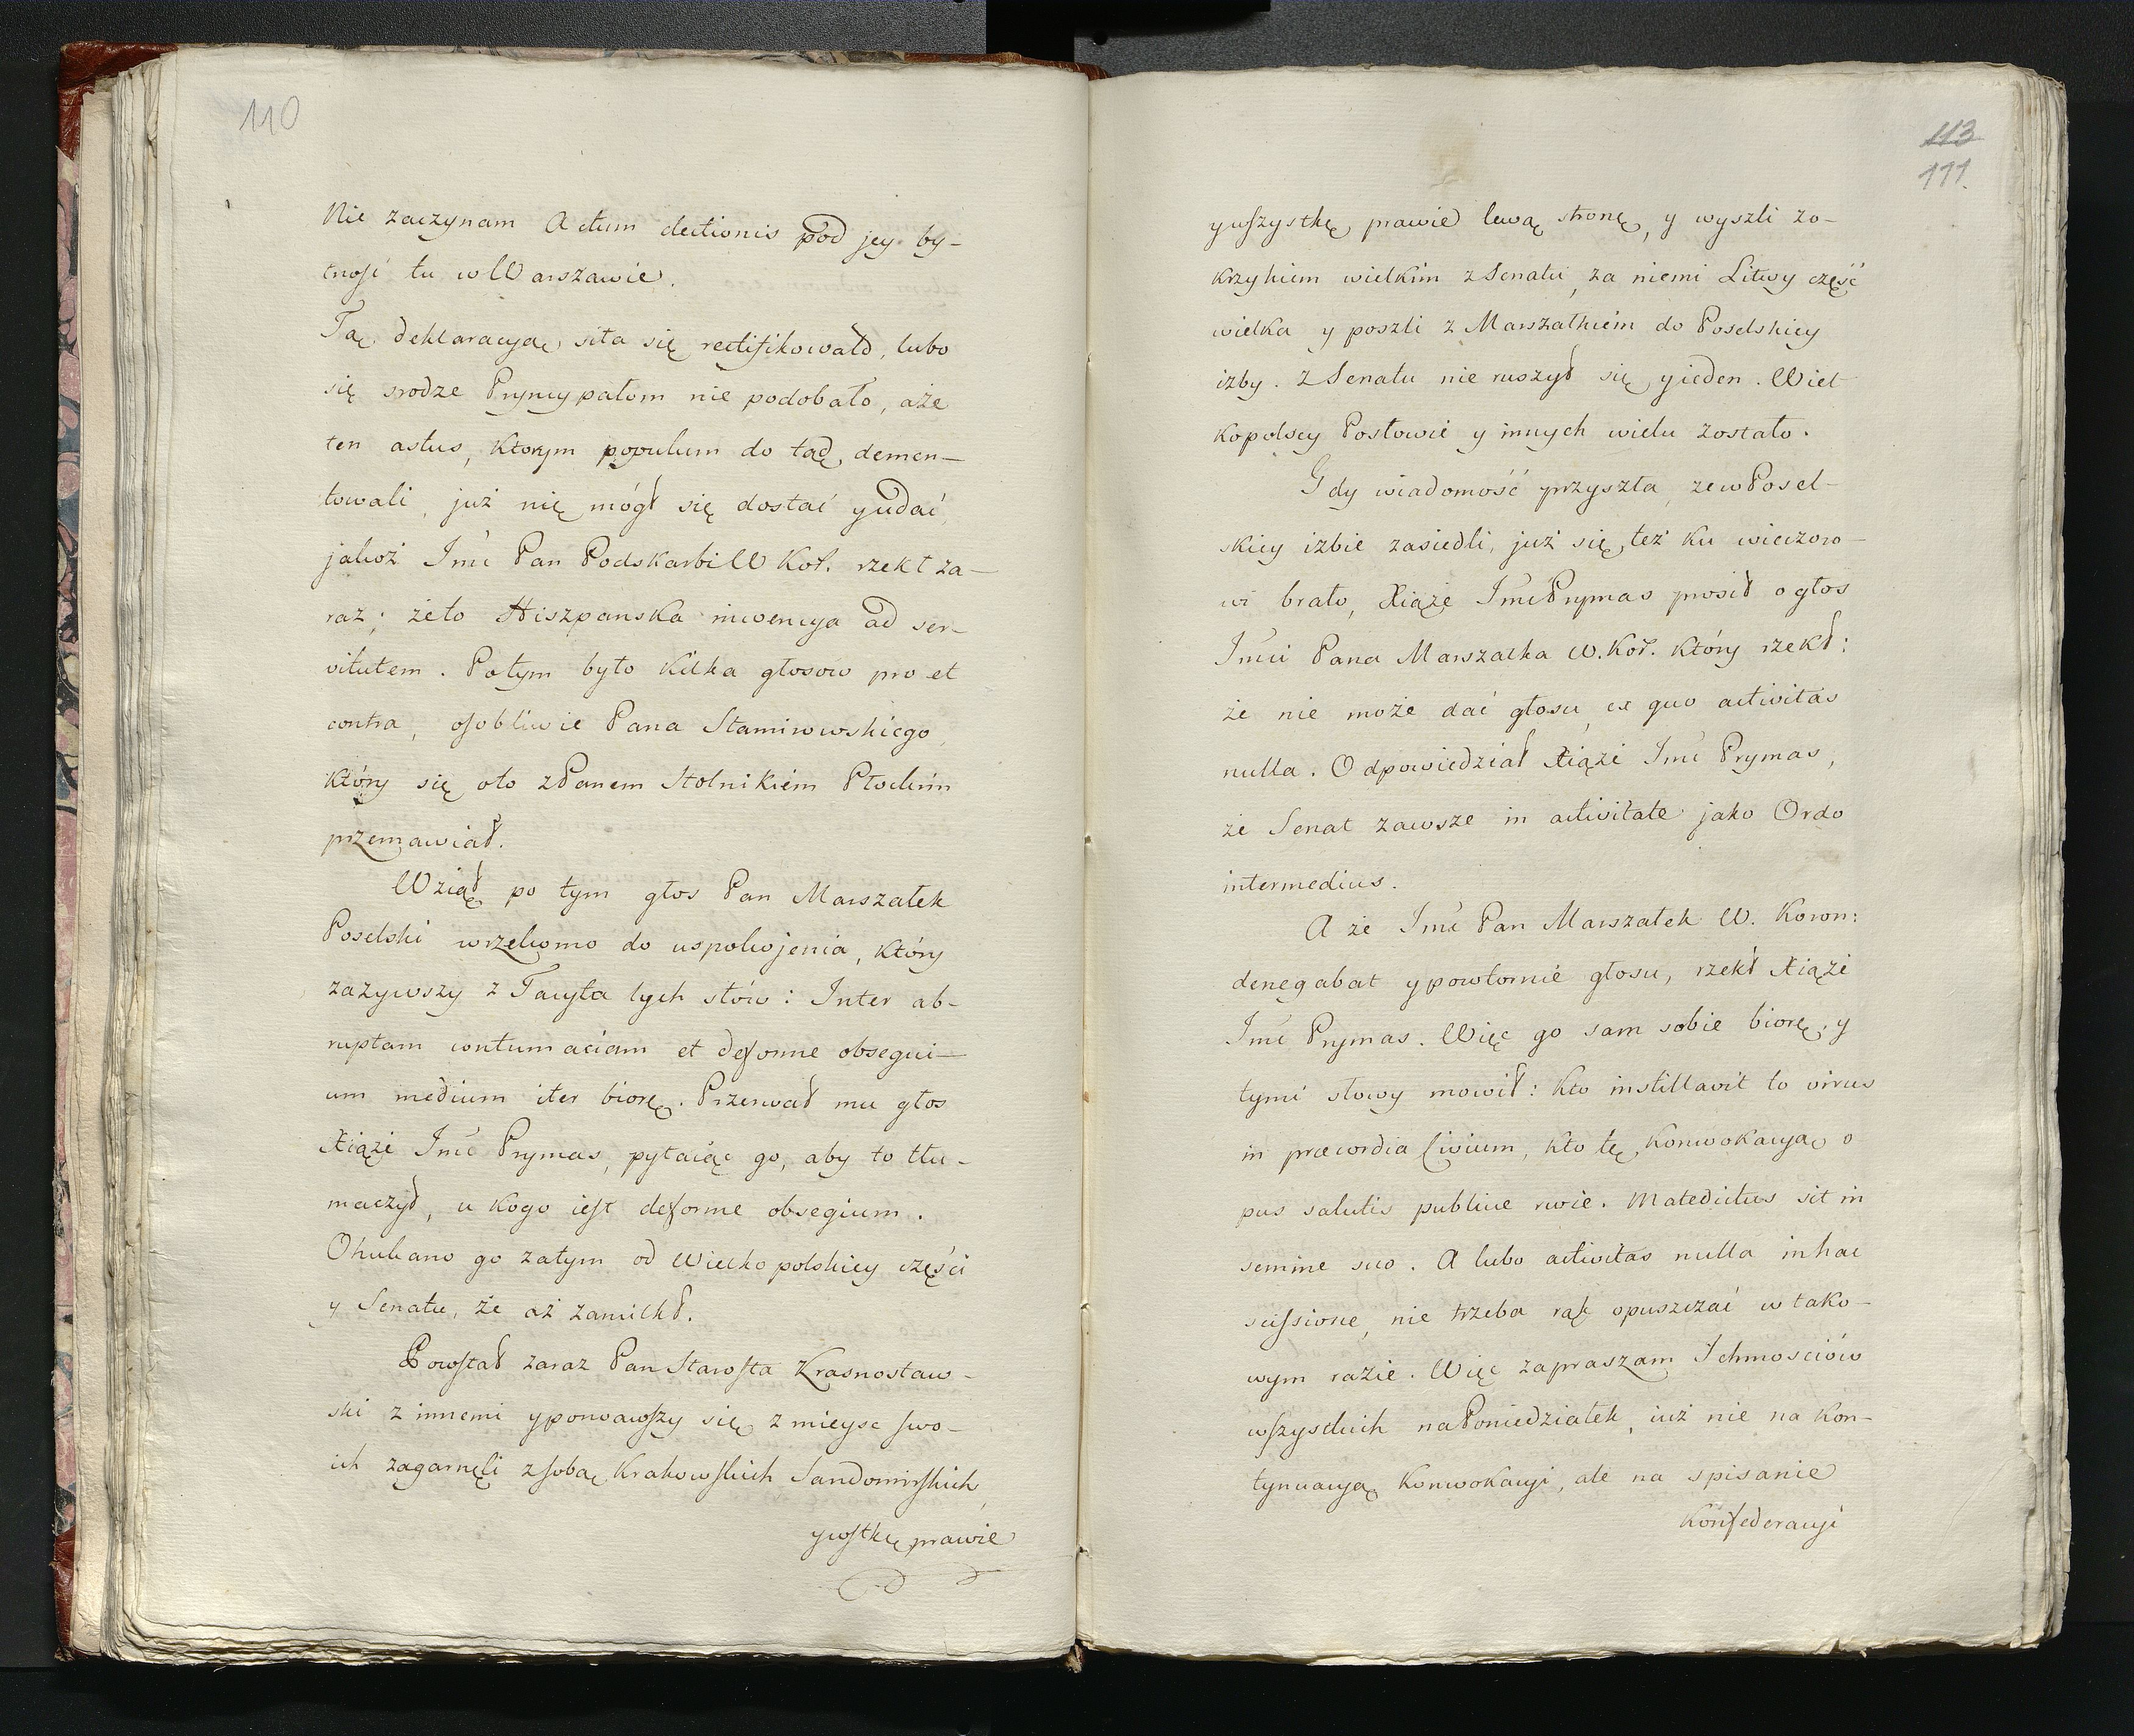 110
Nie zaczynam Actum electionis pod jey by-
tnosć tu w Warszawie.
Tą deklaracyą siła się rectifikowało, lubo
się srodze Pryncypałom nie podobało, aże
ten astus, ktorym populum do tąd demen-
towali, już nię mógł się dostać y udać,
jakoż Jmć Pan Podskarbi W Kor. rzekł za-
raz; że to Hiszpanska inwencya ad ser-
vitutem. Potym było kilka głosow pro et
contra, osobliwie Pana Stamirowskiego,
który się oto z Panem Stolnikiém Płockim
przemawiał.
Wziął po tym głos Pan Marszałek
Poselski wrzekomo do uspokojenia, który
zażywszy z Tacyta tych słów: Inter ab-
ruptam contumaciam et deforme obsequi-
um medium iter biorę. Przerwał mu głos
Xiąże Jmć Prymas, pytaiąc go, aby to tłu-
maczył, u kogo iest deforme obsegium.
Ohukano go zatym od Wielko polskiey częsci
y Senatu, że aż zamilkł.
Powstał zaraz Pan Starosta Krasnostaw-
ski z innemi y porwawszy się z mieysc swo-
ich zagarnęli z sobą Krakowskich Sandomirskich,
y wstkę prawie
113
111.
y wszystkę prawie lewą stronę, y wyszli zo-
krzykiem wielkim z Senatu, za niemi Litwy część
wielka y poszli z Marszałkiém do Poselskiey
izby. Z Senatu nie ruszył się y ieden. Wiel-
kopolscy Posłowie y innych wielu zostało.
Gdy wiadomość przyszła, ze w Posel-
skiey izbie zasiedli, już się też ku wieczoro-
wi brało, Xiążę Jmć Prymas prosił o głos
Jmci Pana Marszałka W. Kor. który rzekł:
że nie może dać głosu, ex quo activitas
nulla. Odpowiedział Xiąże Jmć Prymas,
że Senat zawsze in activitate jako Ordo
intermedius.
A że Jmć Pan Marszałek W. Koron:
denegabat y powtornie głosu, rzekł Xiąże
Jmć Prymas. Więc go sam sobie biorę, y
tymi słowy mowił: Kto instillavit to virus
in præcordia Civium, kto tę Konwokacyą o
pus salutis publicæ rwie. Maledictus sit in
semine suo. A lubo activitas nulla in hac
scissione, nie trzeba rąk opuszczać w tako-
wym razie. Więc zapraszam Ichmosciów
wszystkich na Poniedziałek, iuż nie na kon-
tynuacyą Konwokacyi, ale na spisanie
Konfederacyi